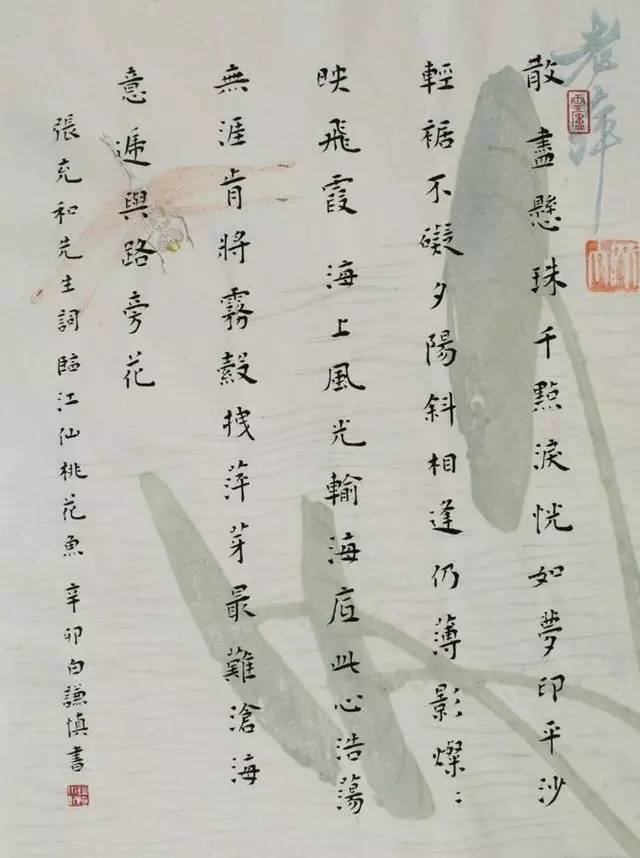 散盡懸珠千點淚恍如夢印平沙
輕裾不礙夕陽斜相逢仍薄影燦〻
映飛霞 海上風光輸海底此心浩蕩
無涯肯將霧縠拽萍芽最難滄海
意遞與路旁花
張充和先生詞臨江仙桃花魚 辛卯白謙慎書